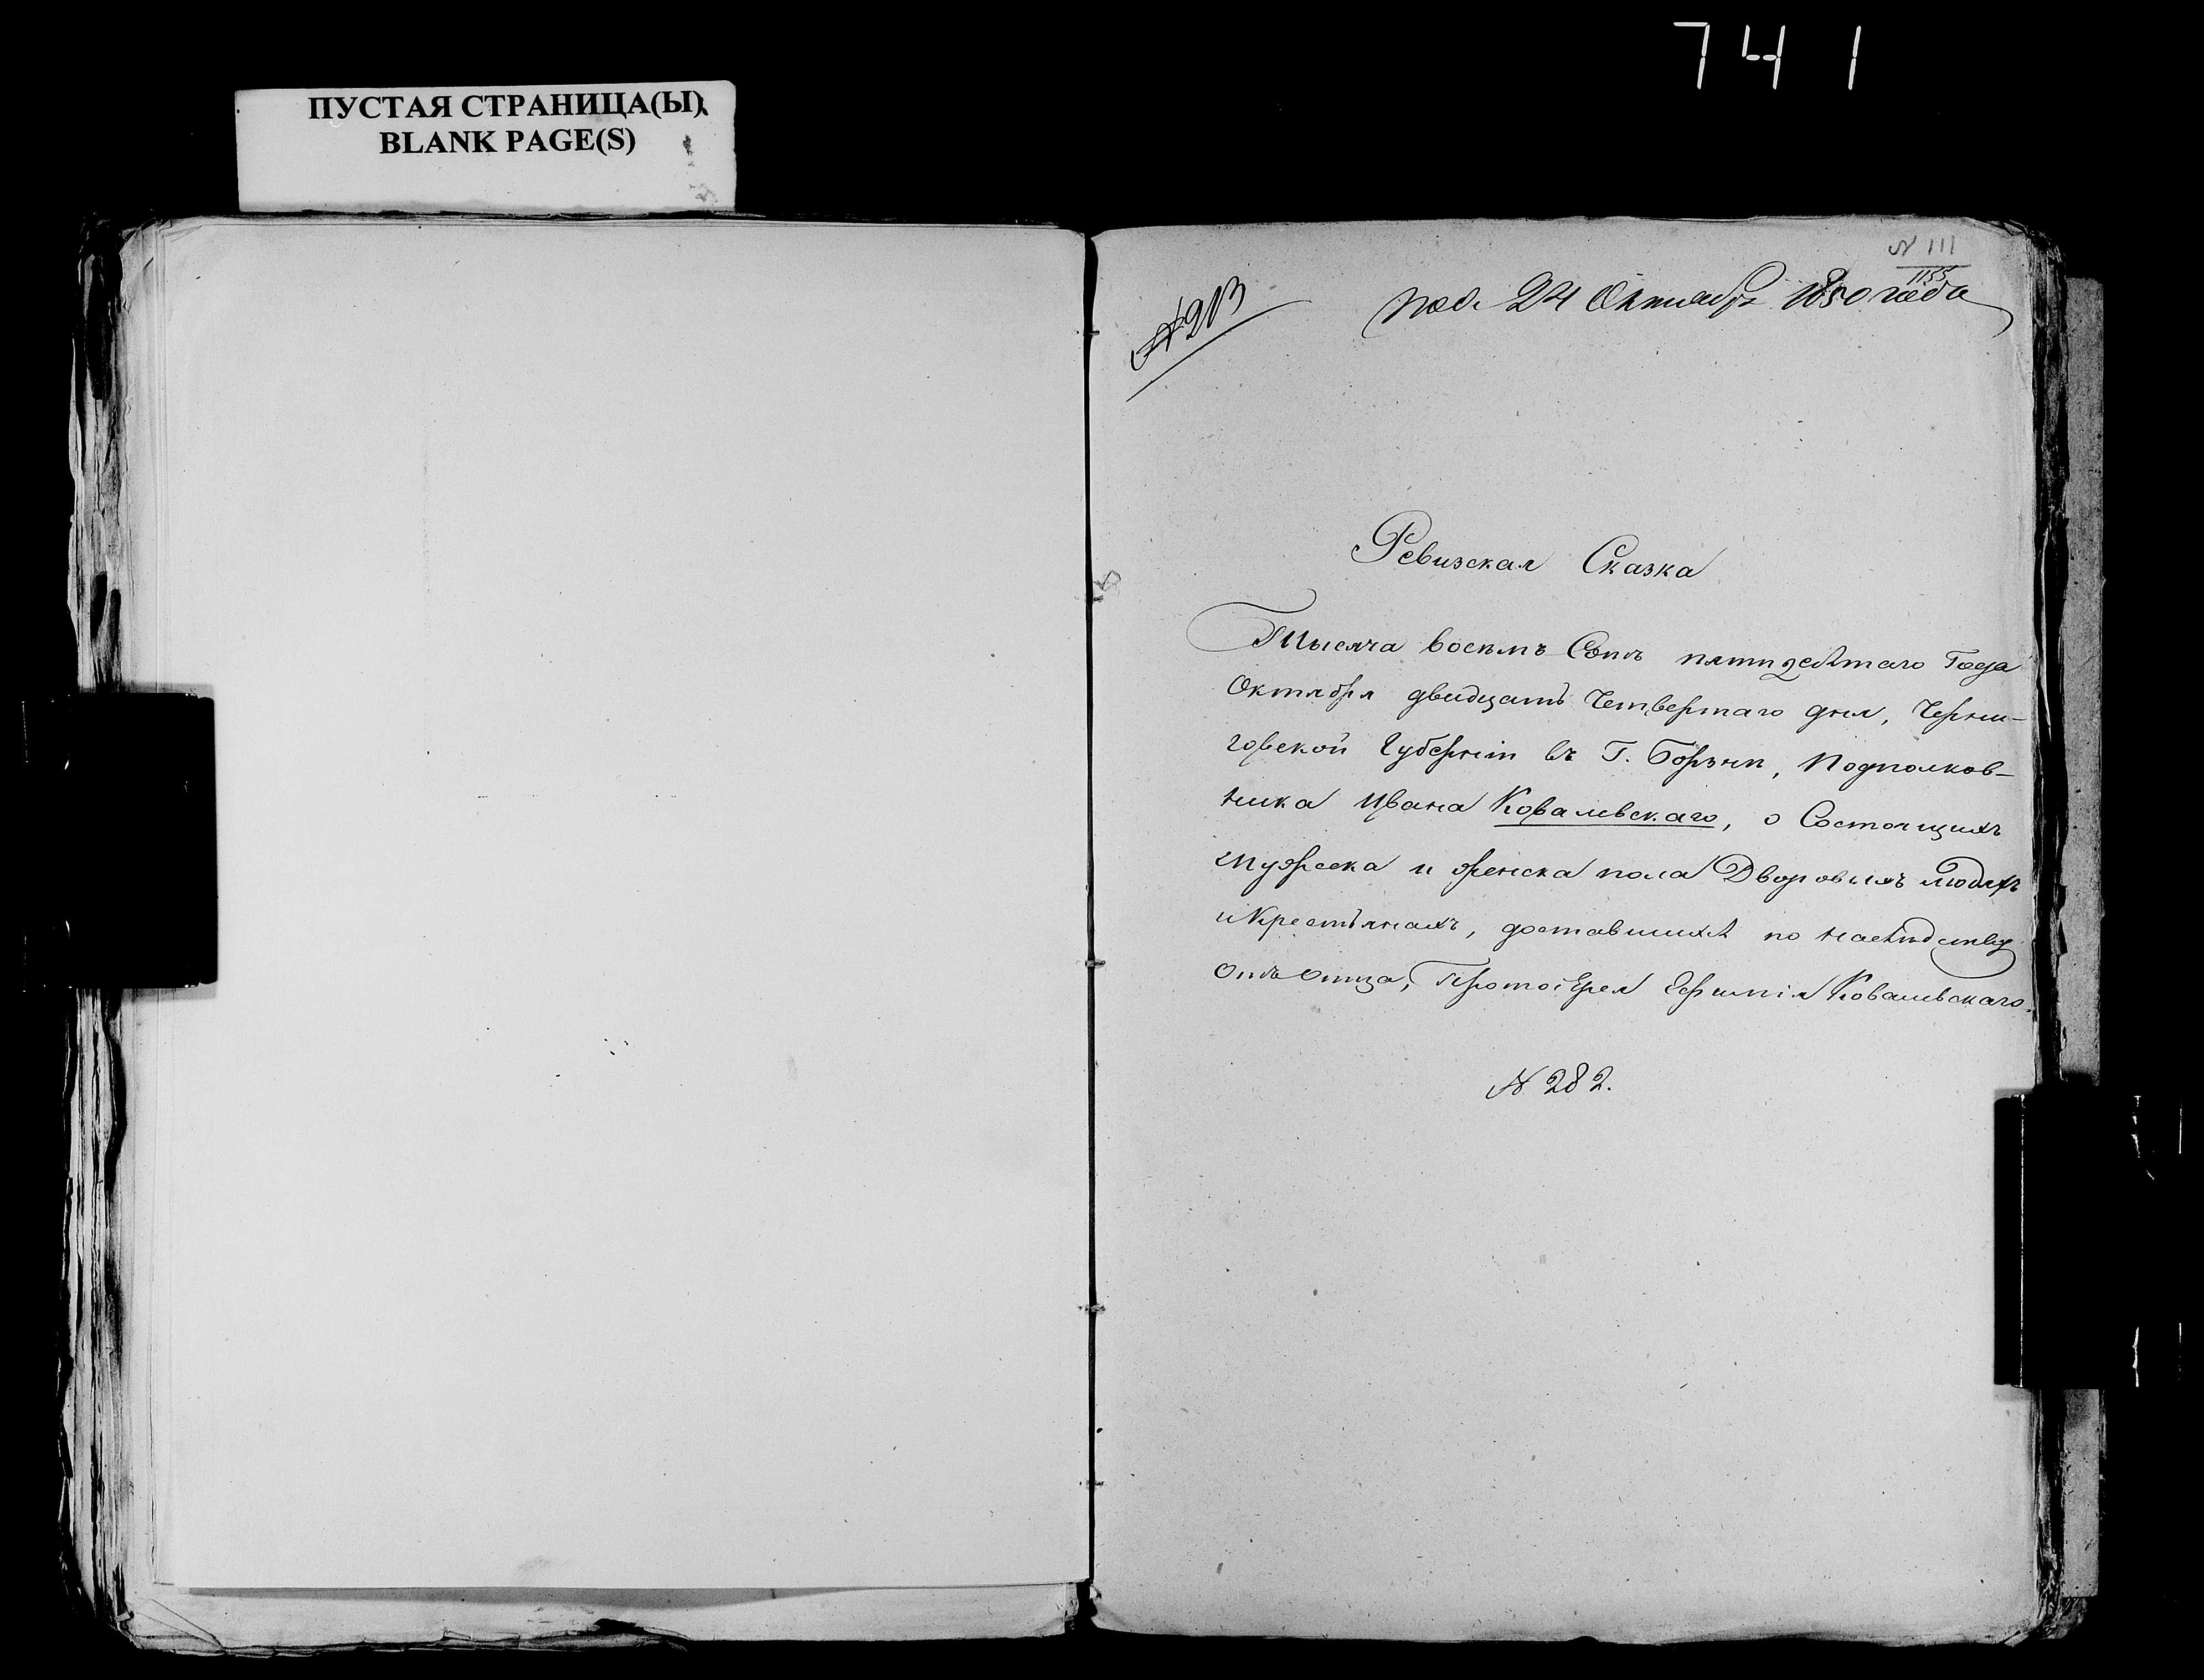 741
ПУСТАЯ СТРАНИЦА(Ы)
BLANK PAGE(S)
№ 111
1155
№ 213
под. 24 Октября 1850 года
Ревизская Сказка
Тысяча восемъ Сотъ пятидесятаго Года
Октября двадцать Четвертаго дня, Черни-
говской Губерніи въ Г. Борзни, Подполков-
ника Ивана Ковалевскаго, о Состоящихъ
мужеска и женска пола Дворовыхъ людяхъ
и Крестьянахъ, доставшихся по наслѣдству
отъ отца, Протоіерея Ефимія Ковалевскаго.
№ 282.